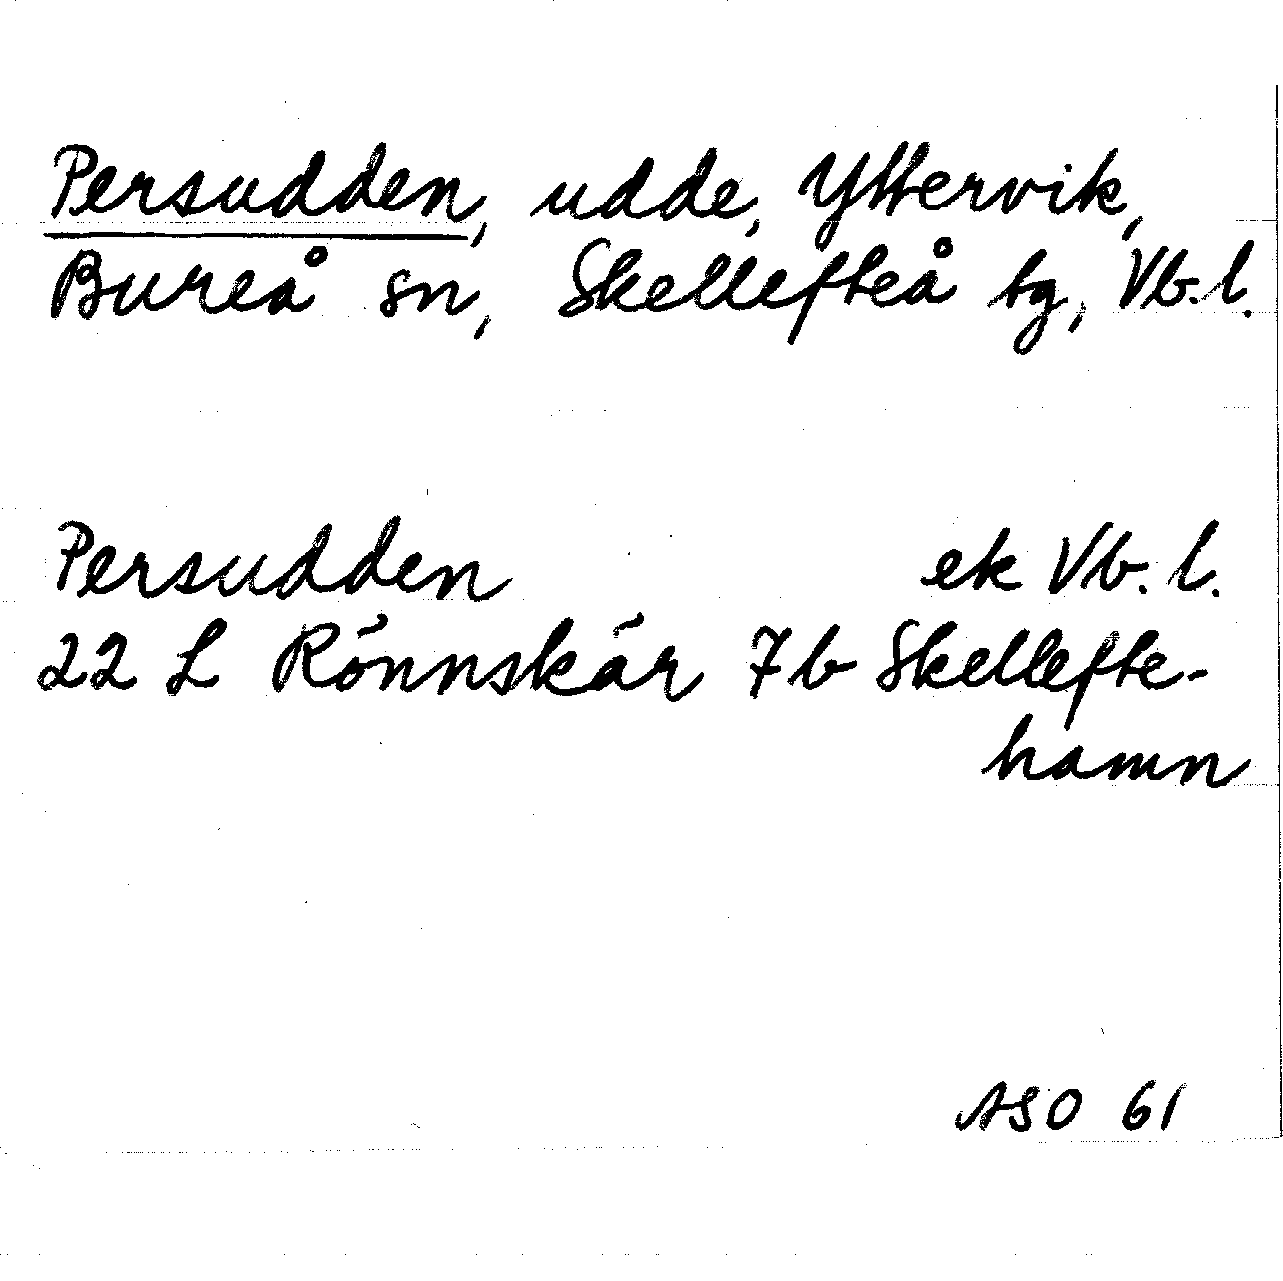 Persudden, udde, Yttervik,
Bureå sn, Skellefteå tg, Vb.l.
Persudden ek Vb. l.
22 L Rönnskär 7b Skellefte-
hamn
ASO 61